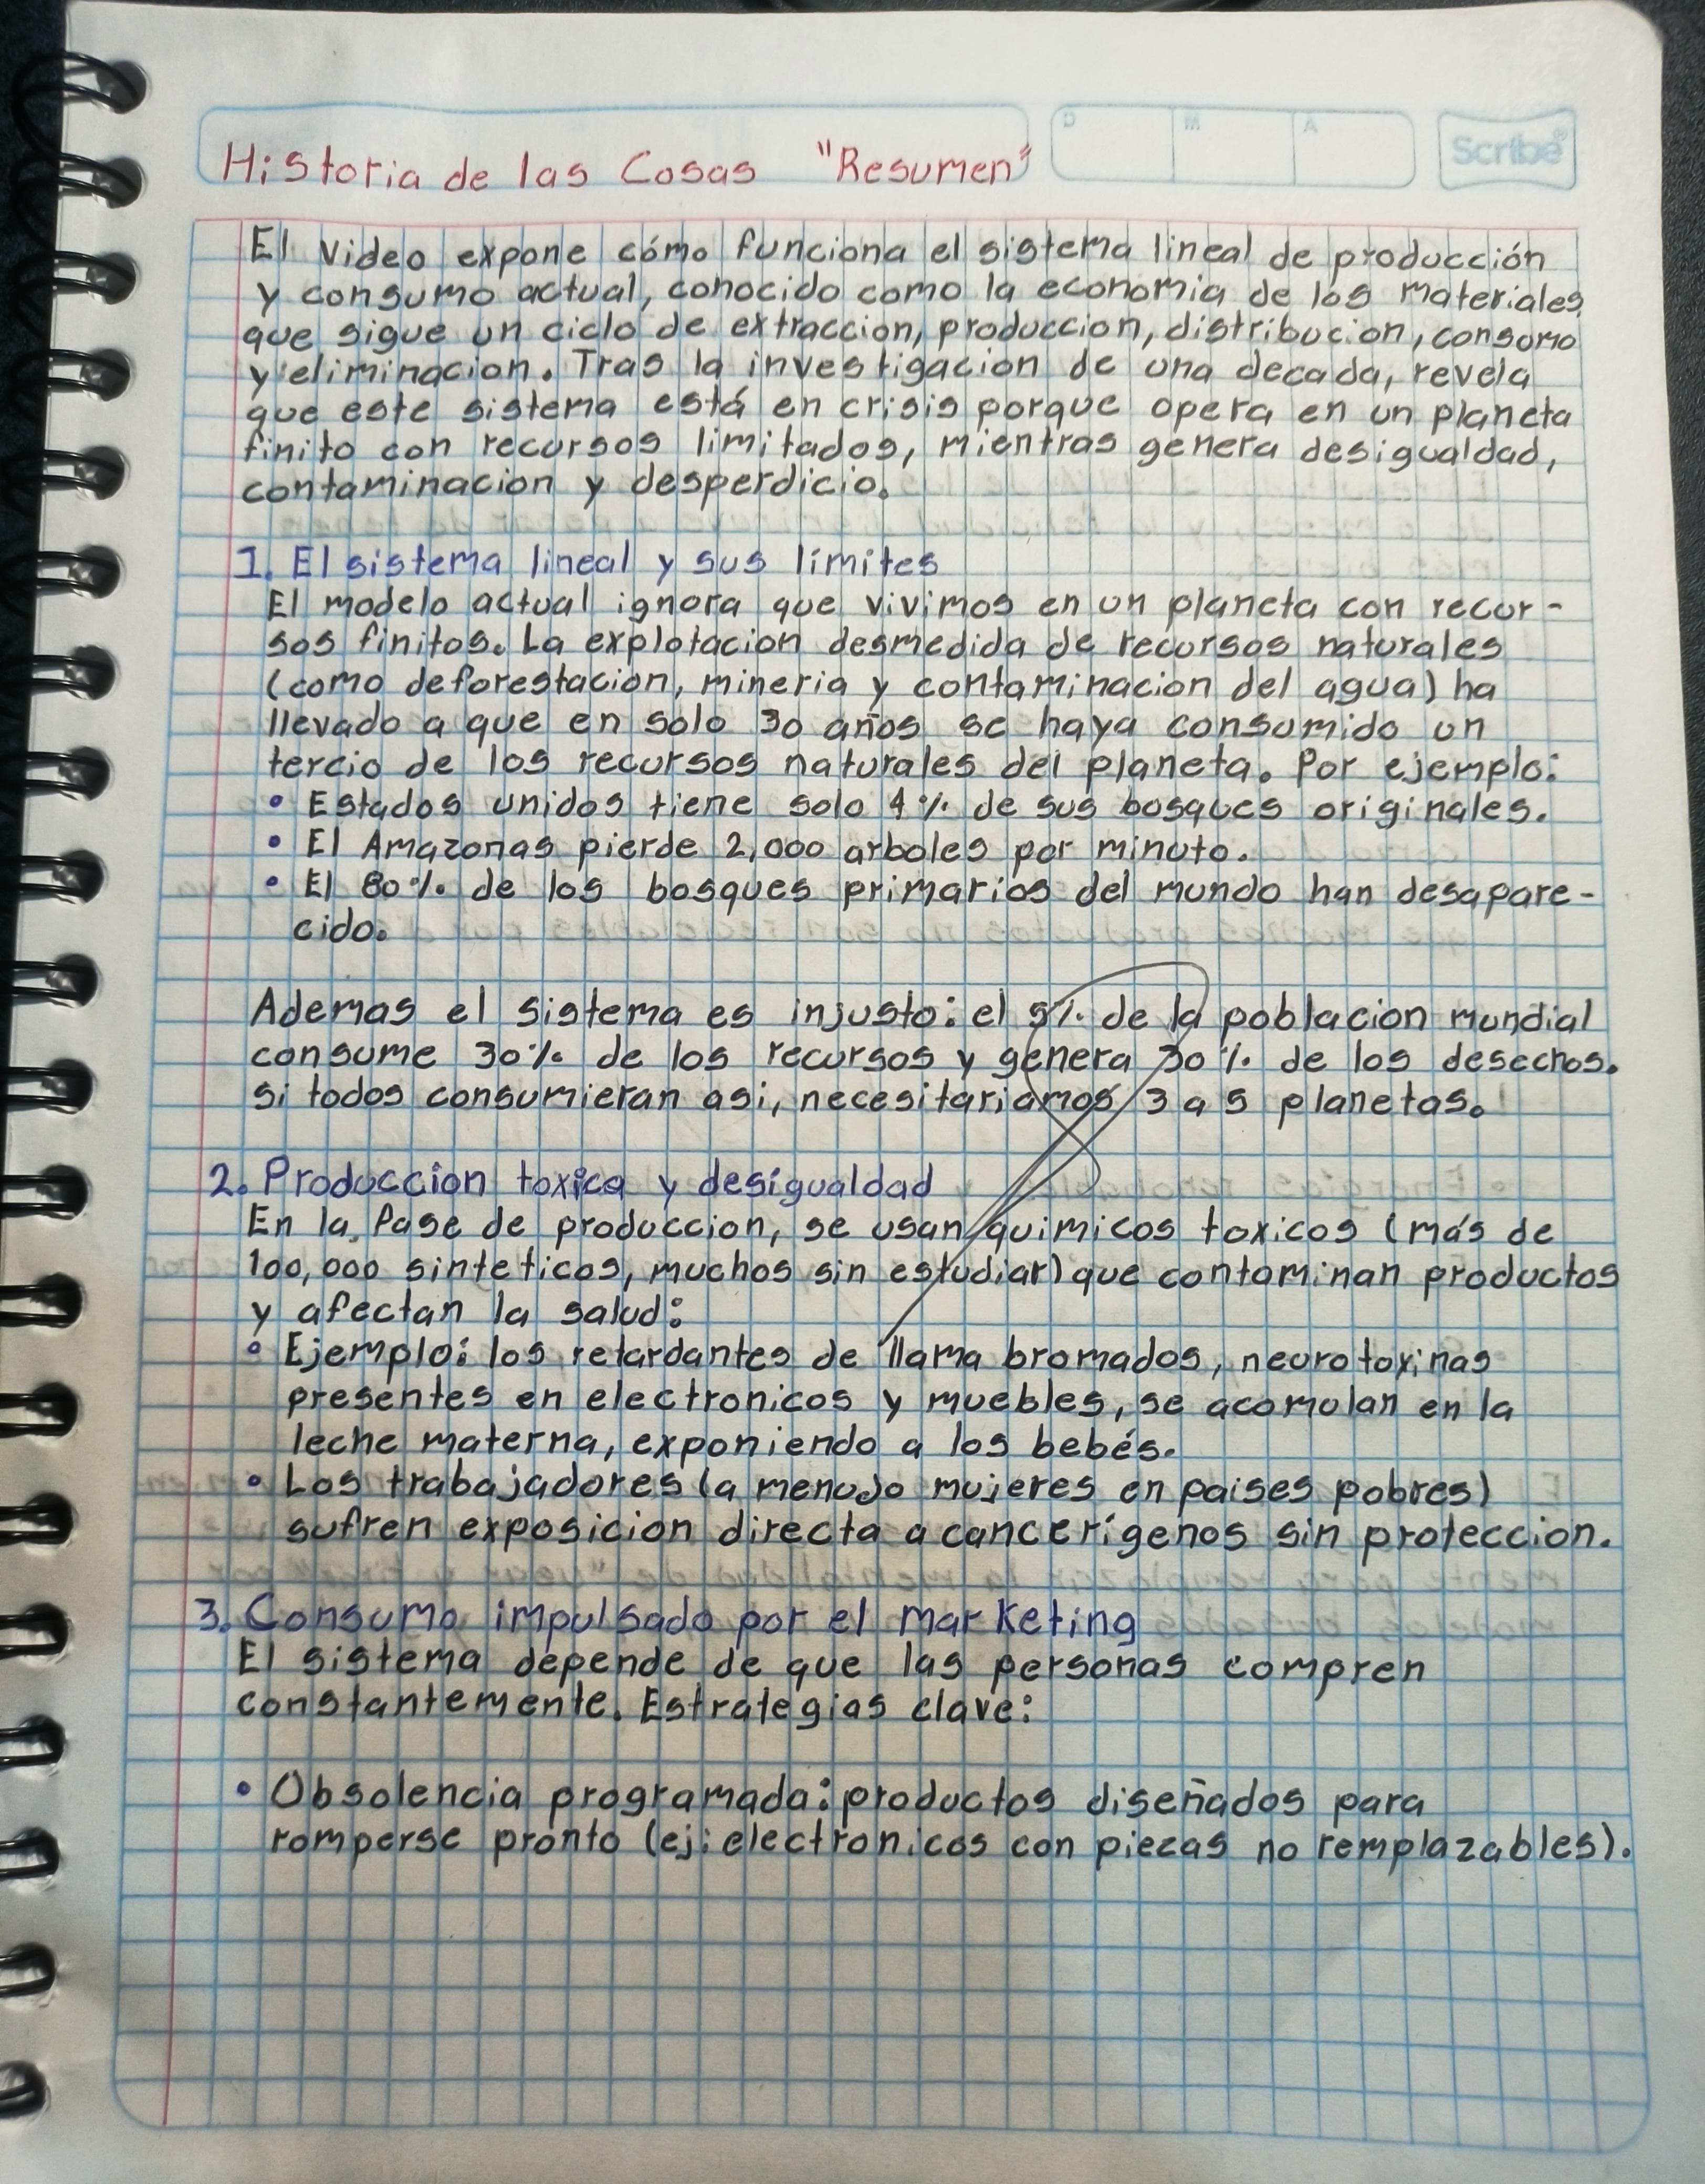 Historia de las Cosas "Resumen"
D M A
Scribe®
El video expone cómo funciona el sistema lineal de producción
y consumo actual, conocido como la economia de los materiales
que sigue un ciclo de extraccion, produccion, distribucion, consumo
y eliminacion. Tras la investigacion de una decada, revela
que este sistema está en crisis porque opera en un planeta
finito con recursos limitados, mientras genera desigualdad,
contaminacion y desperdicio.
1. El sistema lineal y sus límites
El modelo actual ignora que vivimos en un planeta con recur-
sos finitos. La explotacion desmedida de recursos naturales
(como deforestacion, mineria y contaminacion del agua) ha
llevado a que en solo 30 años se haya consumido un
tercio de los recursos naturales del planeta. Por ejemplo:
• Estados unidos tiene solo 4% de sus bosques originales.
• El Amazonas pierde 2,000 arboles por minuto.
• El 80% de los bosques primarios del mundo han desapare-
cido.
Ademas el sistema es injusto: el 5% de la poblacion mundial
consume 30% de los recursos y genera 30% de los desechos.
si todos consumieran asi, necesitariamos 3 a 5 planetas.
2. Produccion toxica y desigualdad
En la fase de produccion, se usan quimicos toxicos (más de
100,000 sinteticos, muchos sin estudiar) que contaminan productos
y afectan la salud:
• Ejemplo: los retardantes de llama bromados, neurotoxinas
presentes en electronicos y muebles, se acomulan en la
leche materna, exponiendo a los bebés.
• Los trabajadores (a menudo mujeres en paises pobres)
sufren exposicion directa a cancerígenos sin proteccion.
3. Consumo impulsado por el marketing
El sistema depende de que las personas compren
constantemente. Estrategias clave:
• Obsolencia programada: productos diseñados para
romperse pronto (ej: electronicos con piezas no remplazables).